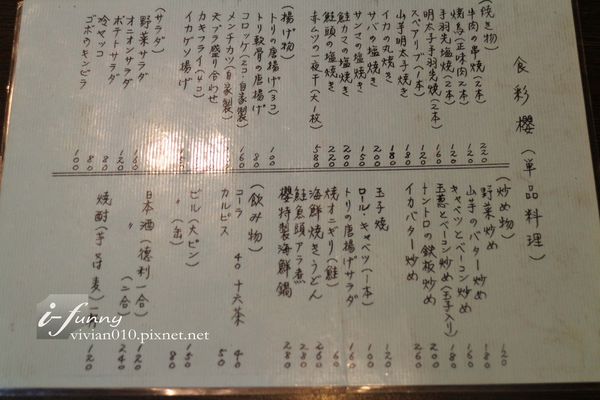 食彩櫻(単品料理)
(焼き物)
牛肉の串焼(2本) 220
焼鳥(正味肉2本) 120
手羽先塩焼(2本) 160
明太子手羽先焼(2本) 160
スペアリブ(1本) 120
山芋明太子焼き 180
イカの丸焼き 180
サバの塩焼き 120
サンマの塩焼き 150
鮭カマの塩焼き 200
鮭頭の塩焼き 220
赤ムツの一夜干(大1枚) 580
(揚げ物)
トリの唐揚げ(3コ) 100
トリ軟骨の唐揚げ 80
コロッケ(2コ・自家製)
メンチカツ(自家製)
天プラ盛り合わせ
カキフライ(4コ)
イカゲソ揚げ
(サラダ)
野菜サラダ 160
オニオンサラダ 120
ポテトサラダ 80
冷ヤッコ 80
ゴボウキンピラ 100
(炒め物)
野菜炒め 120
山芋のバター炒め 180
キャベツとベーコン炒め 160
玉葱とベーコン炒め(玉子入り) 180
トントロの鉄板炒め 200
イカバター炒め 260
玉子焼 120
ロール・キャベツ(1本) 100
トリの唐揚げサラダ 160
焼オニギリ(鮭) 60
海鮮焼きうどん 260
鮭魚頭アラ煮 280
櫻特製海鮮鍋 280
(飲み物)
コーラ 40 十六茶 40
カルピス 50
ビール(大ビン) 150
〃(缶) 80
日本酒(徳利一合) 120
〃(二合) 240
焼酎(芋 そば 麦) 120
i-funny
vivian010.pixnet.net